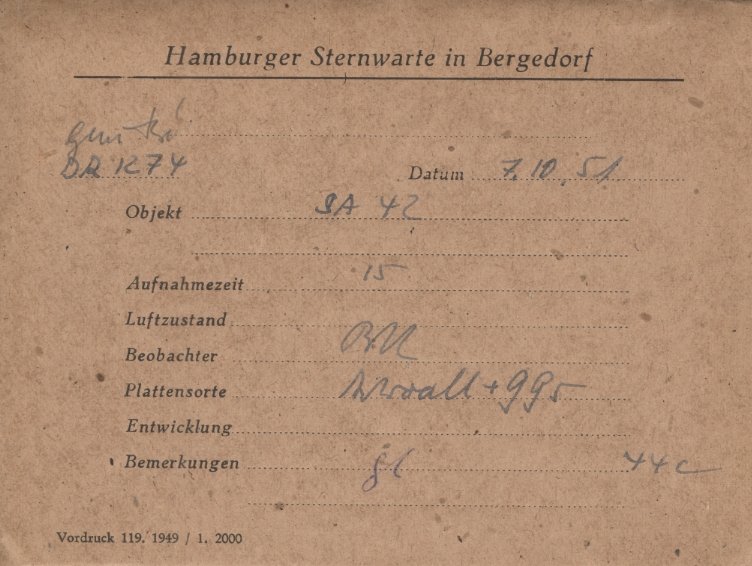 Hamburger Sternwarte in Bergedorf
BR 1274
Datum 7.10.51
Objekt SA 42
Aufnahmezeit 15
Luftzustand
Beobachter
Plattensorte + GG5
Entwicklung
Bemerkungen 44c
Vordruck 119. 1949 / 1. 2000